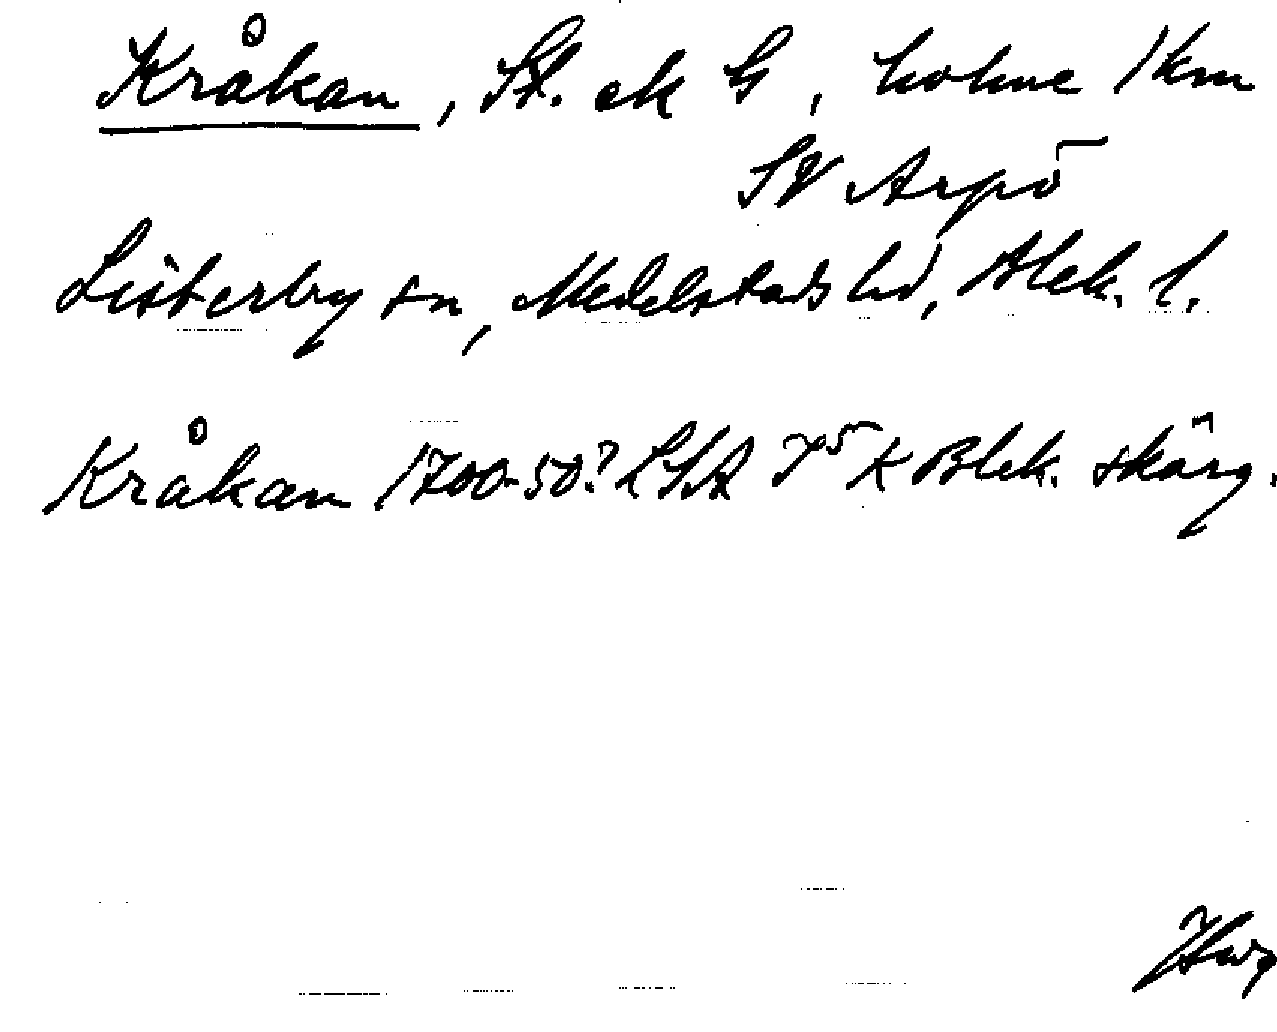 Kråkan, St. ek G, holme 1 km
SV Arpö
Listerby sn, Medelstads hd, Blek. l.
Kråkan 1700-50? LSA K Blek. skärg.